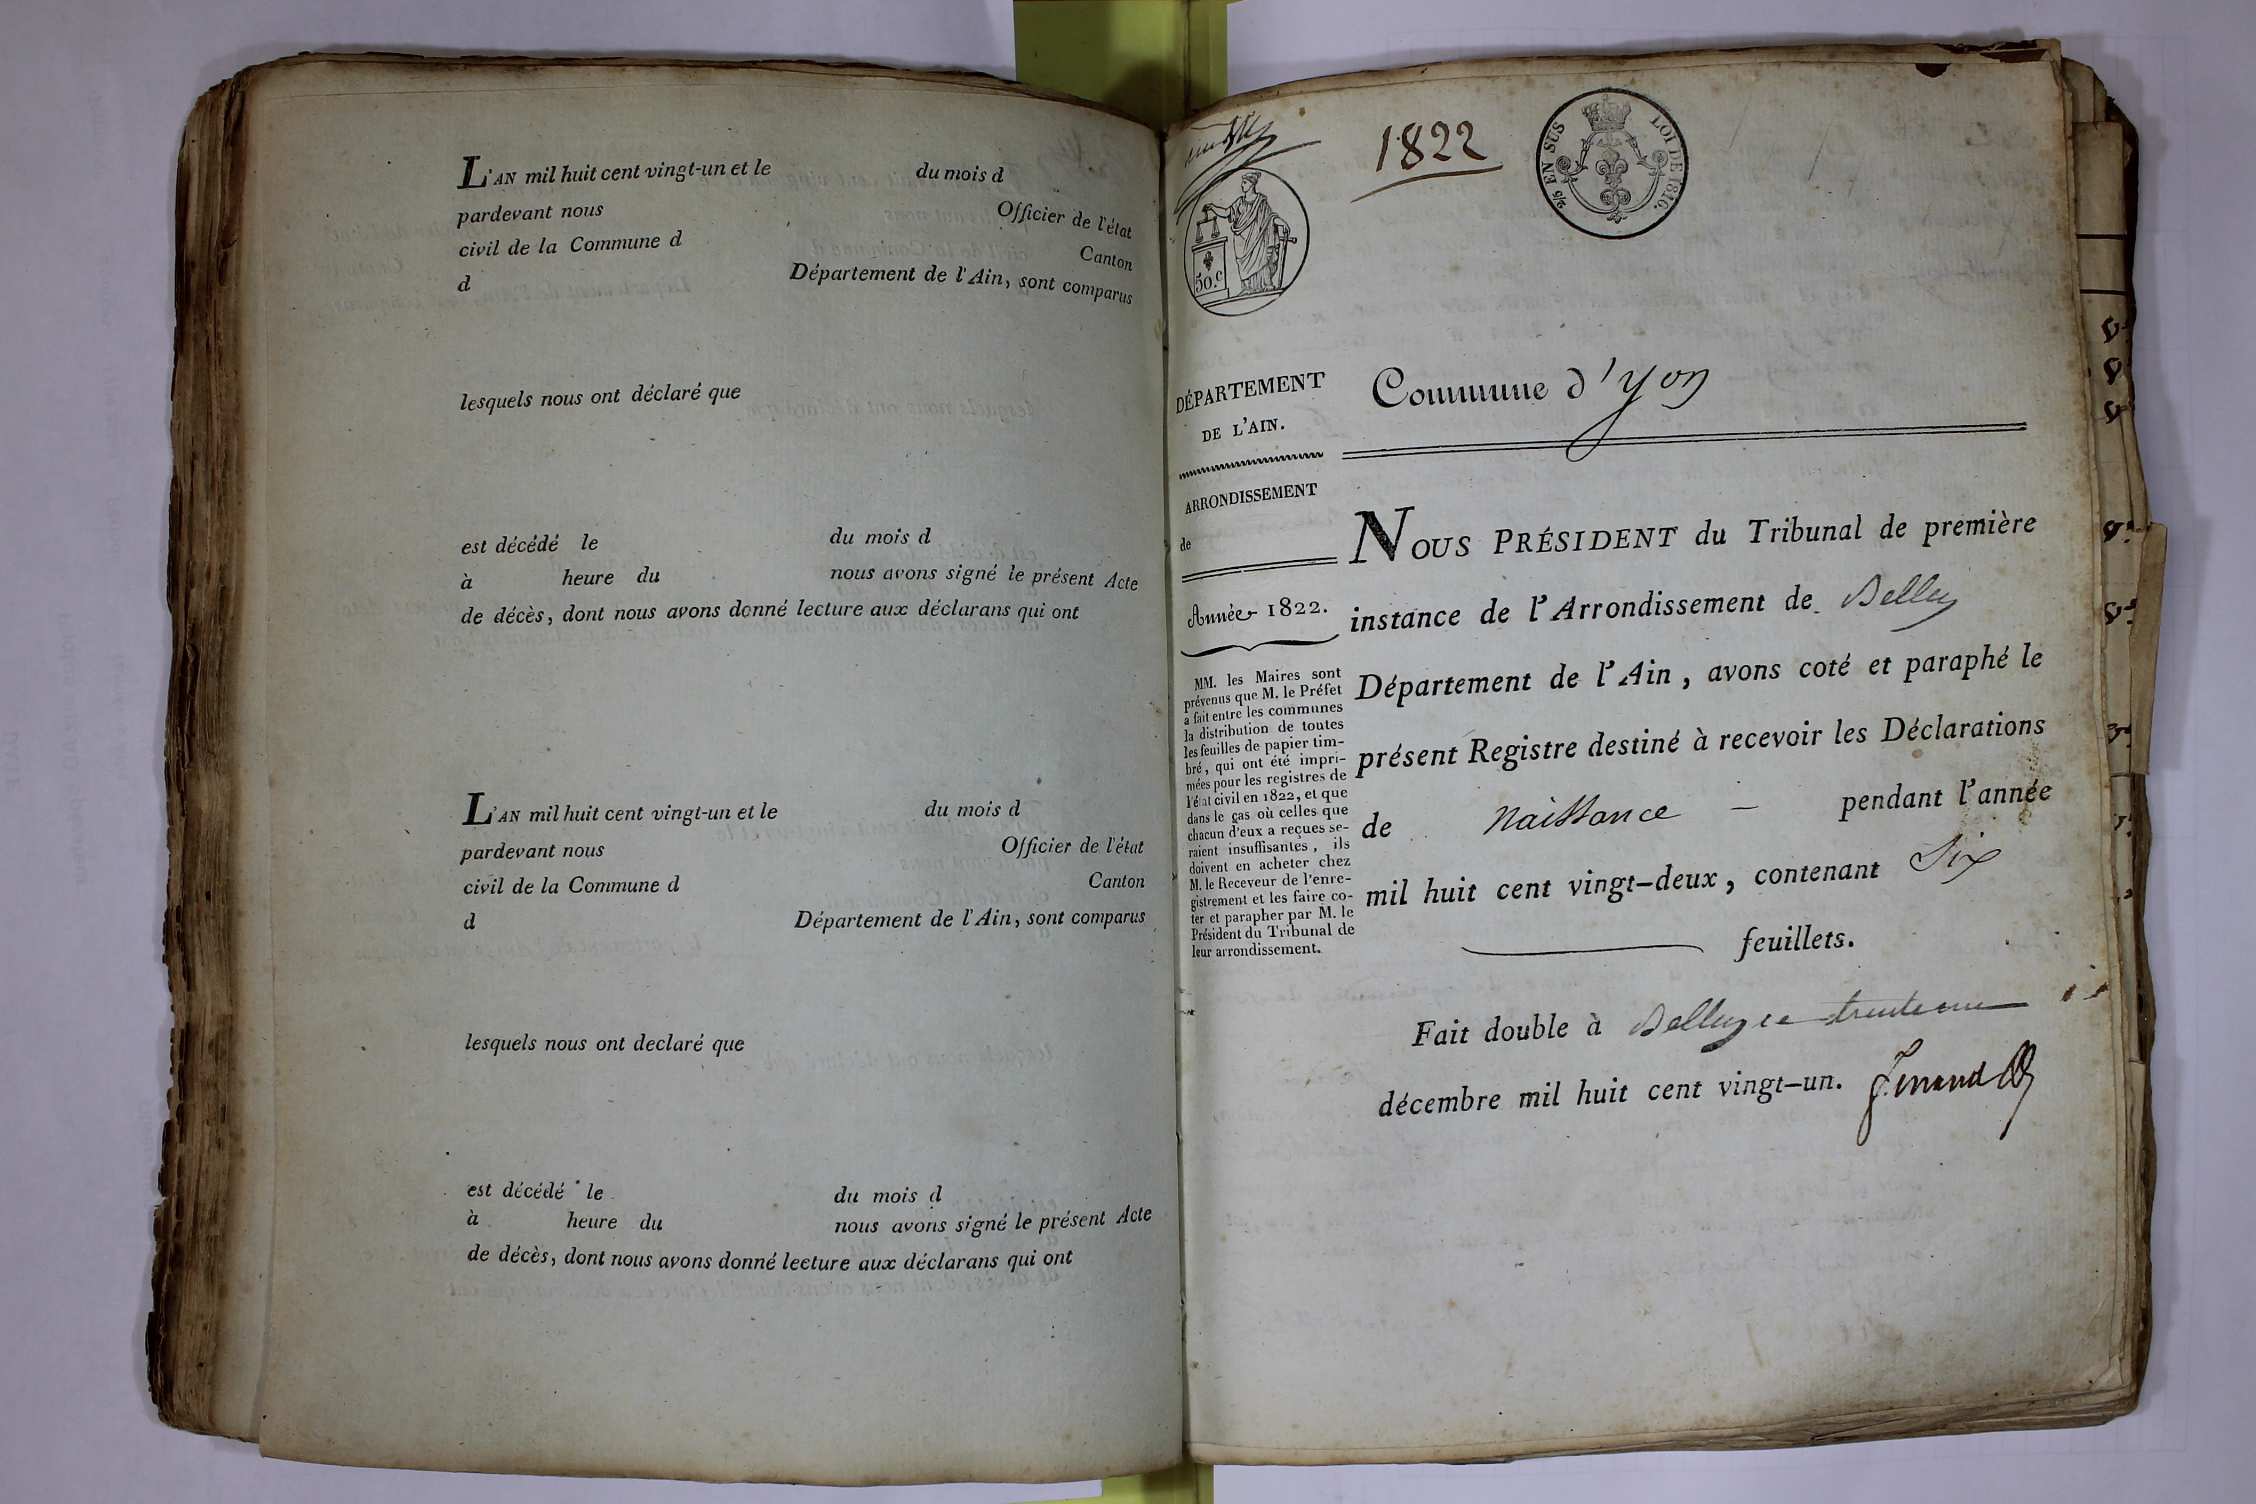 L'AN mil huit cent vingt-un et le du mois d
pardevant nous Officier de l'état
civil de la Commune d Canton
d Département de l'Ain, sont comparus
lesquels nous ont déclaré que
est décédé le du mois d
à heure du nous avons signé le présent Acte
de décès, dont nous avons donné lecture aux déclarans qui ont
L'AN mil huit cent vingt-un et le du mois d
pardevant nous Officier de l'état
civil de la Commune d Canton
d Département de l'Ain, sont comparus
lesquels nous ont declaré que
est décédé le du mois d
à heure du nous avons signé le présent Acte
de décès, dont nous avons donné lecture aux déclarans qui ont
1822
2/5 EN SUS LOI DE 1816.
50.c
DÉPARTEMENT
DE L'AIN.
ARRONDISSEMENT
de
Année 1822.
MM. les Maires sont
prévenus que M. le Préfet
a fait entre les communes
la distribution de toutes
les feuilles de papier tim-
bré, qui ont été impri-
mées pour les registres de
l'état civil en 1822, et que
dans le cas où celles que
chacun d'eux a reçues se-
raient insuffisantes, ils
doivent en acheter chez
M. le Receveur de l'enre-
gistrement et les faire co-
ter et parapher par M. le
Président du Tribunal de
leur arrondissement.
Commune d'yon
NOUS PRÉSIDENT du Tribunal de première
instance de l'Arrondissement de Belley
Département de l'Ain, avons coté et paraphé le
présent Registre destiné à recevoir les Déclarations
de Naissance – pendant l'année
mil huit cent vingt-deux, contenant Six
feuillets.
Fait double à Belley le trente un
décembre mil huit cent vingt-un.